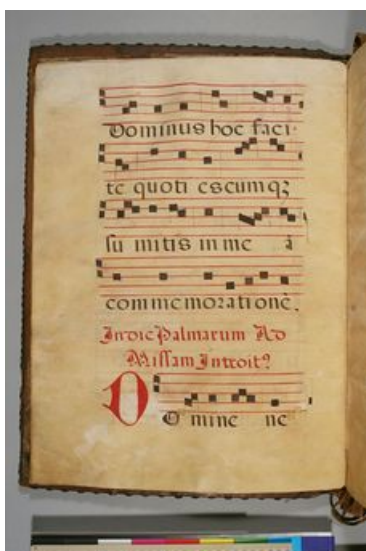 Dominus hoc faci
te quoti escumqꝫ
su mitis in me ā
commemorationē.
In die Palmarum Ad
Missam Introitꝰ
DOmine ne